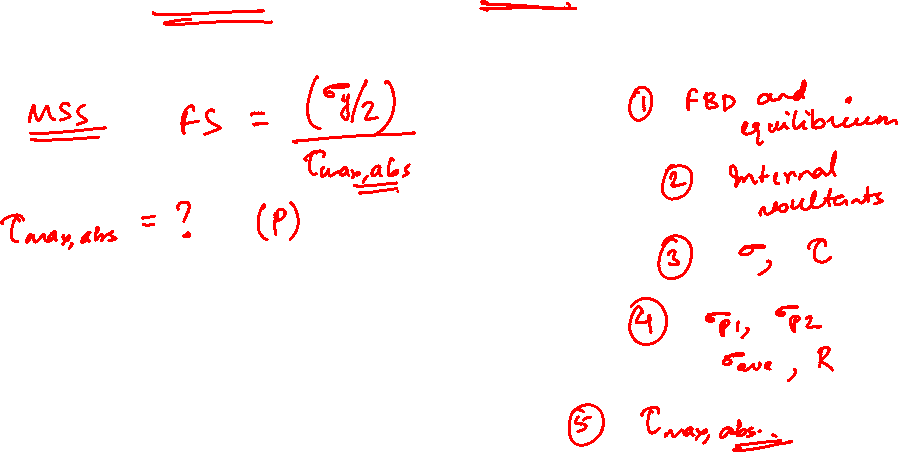 MSS FS = (σy/2) / τmax,abs
τmax,abs = ? (P)
① FBD and
equilibrium
② Internal
resultants
③ σ, τ
④ σP1, σP2
σave, R
⑤ τmax, abs.